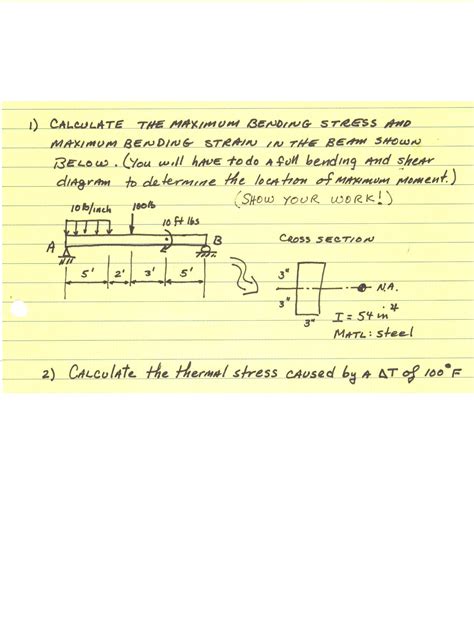 1) CALCULATE THE MAXIMUM BENDING STRESS AND
MAXIMUM BENDING STRAIN IN THE BEAM SHOWN
BELOW. (You will HAVE to do A full bending And shear
diagram to determine the location of MAXIMUM MOMENT.)
(SHOW YOUR WORK!)
10 lb/inch 100 lb
10 ft lbs
A B
CROSS SECTION
5' 2' 3' 5'
3"
3"
3"
N.A.
I = 54 in⁴
MATL: steel
2) CALCULATE the thermal stress CAUSED by A ΔT of 100°F